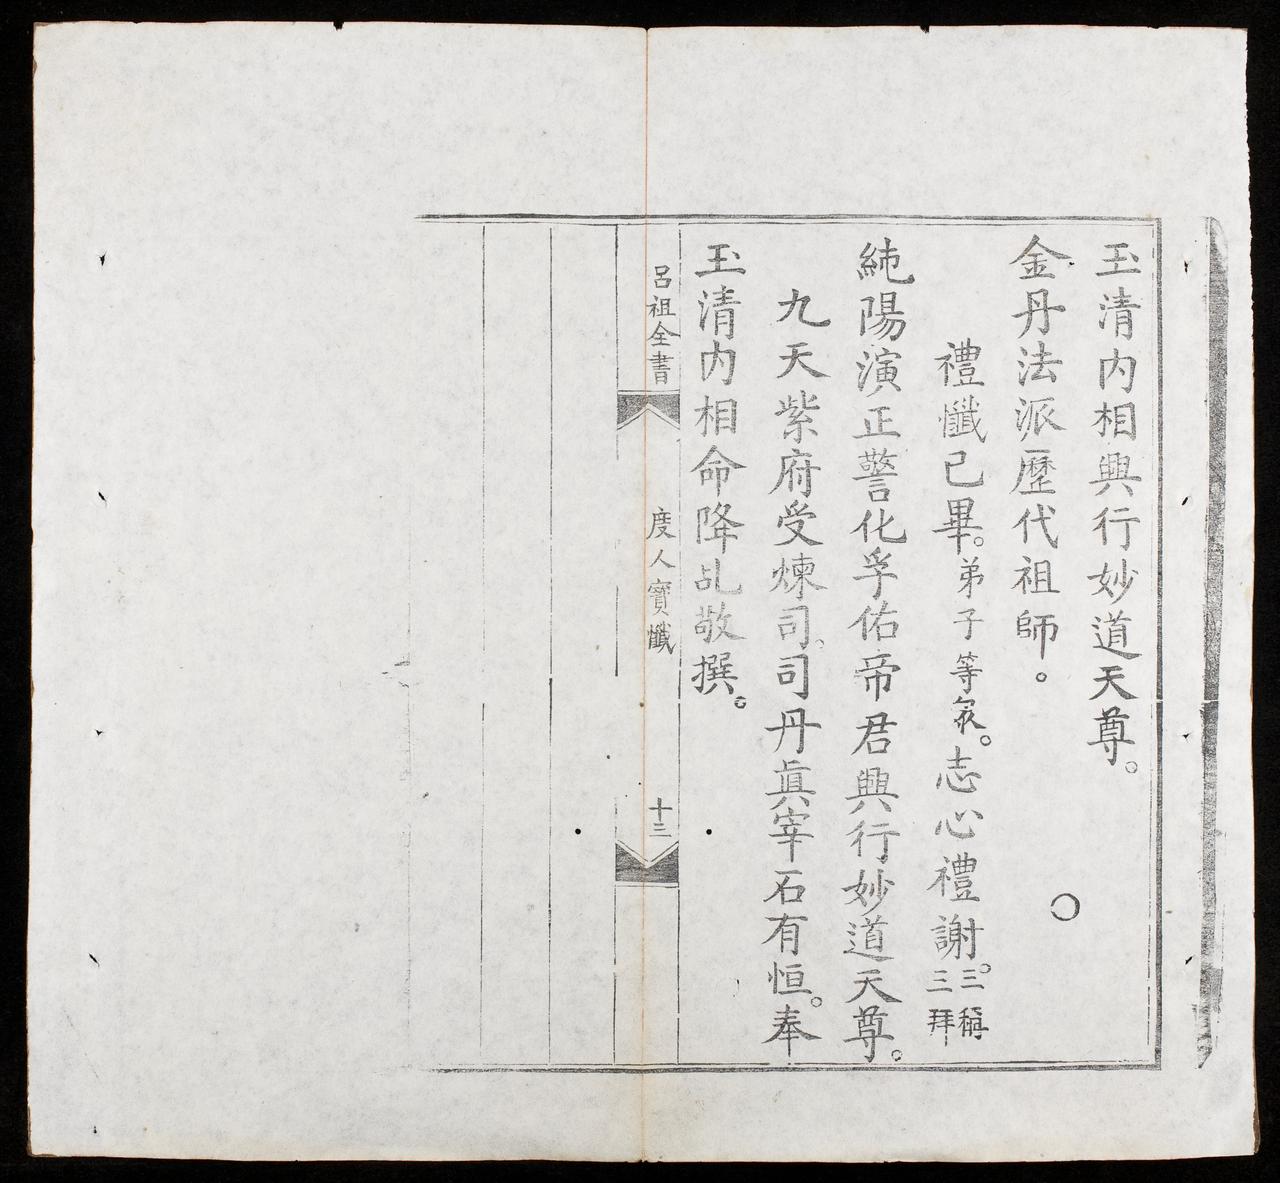 玉清内相興行妙道天尊。
金丹法派歷代祖師。
禮懺已畢。弟子等衆。志心禮謝。三稱三拜
純陽演正警化孚佑帝君興行妙道天尊。
九天紫府受煉司。司丹眞宰石有恒。奉
玉清内相命降乩敬撰。
呂祖全書 度人寶懺 十三